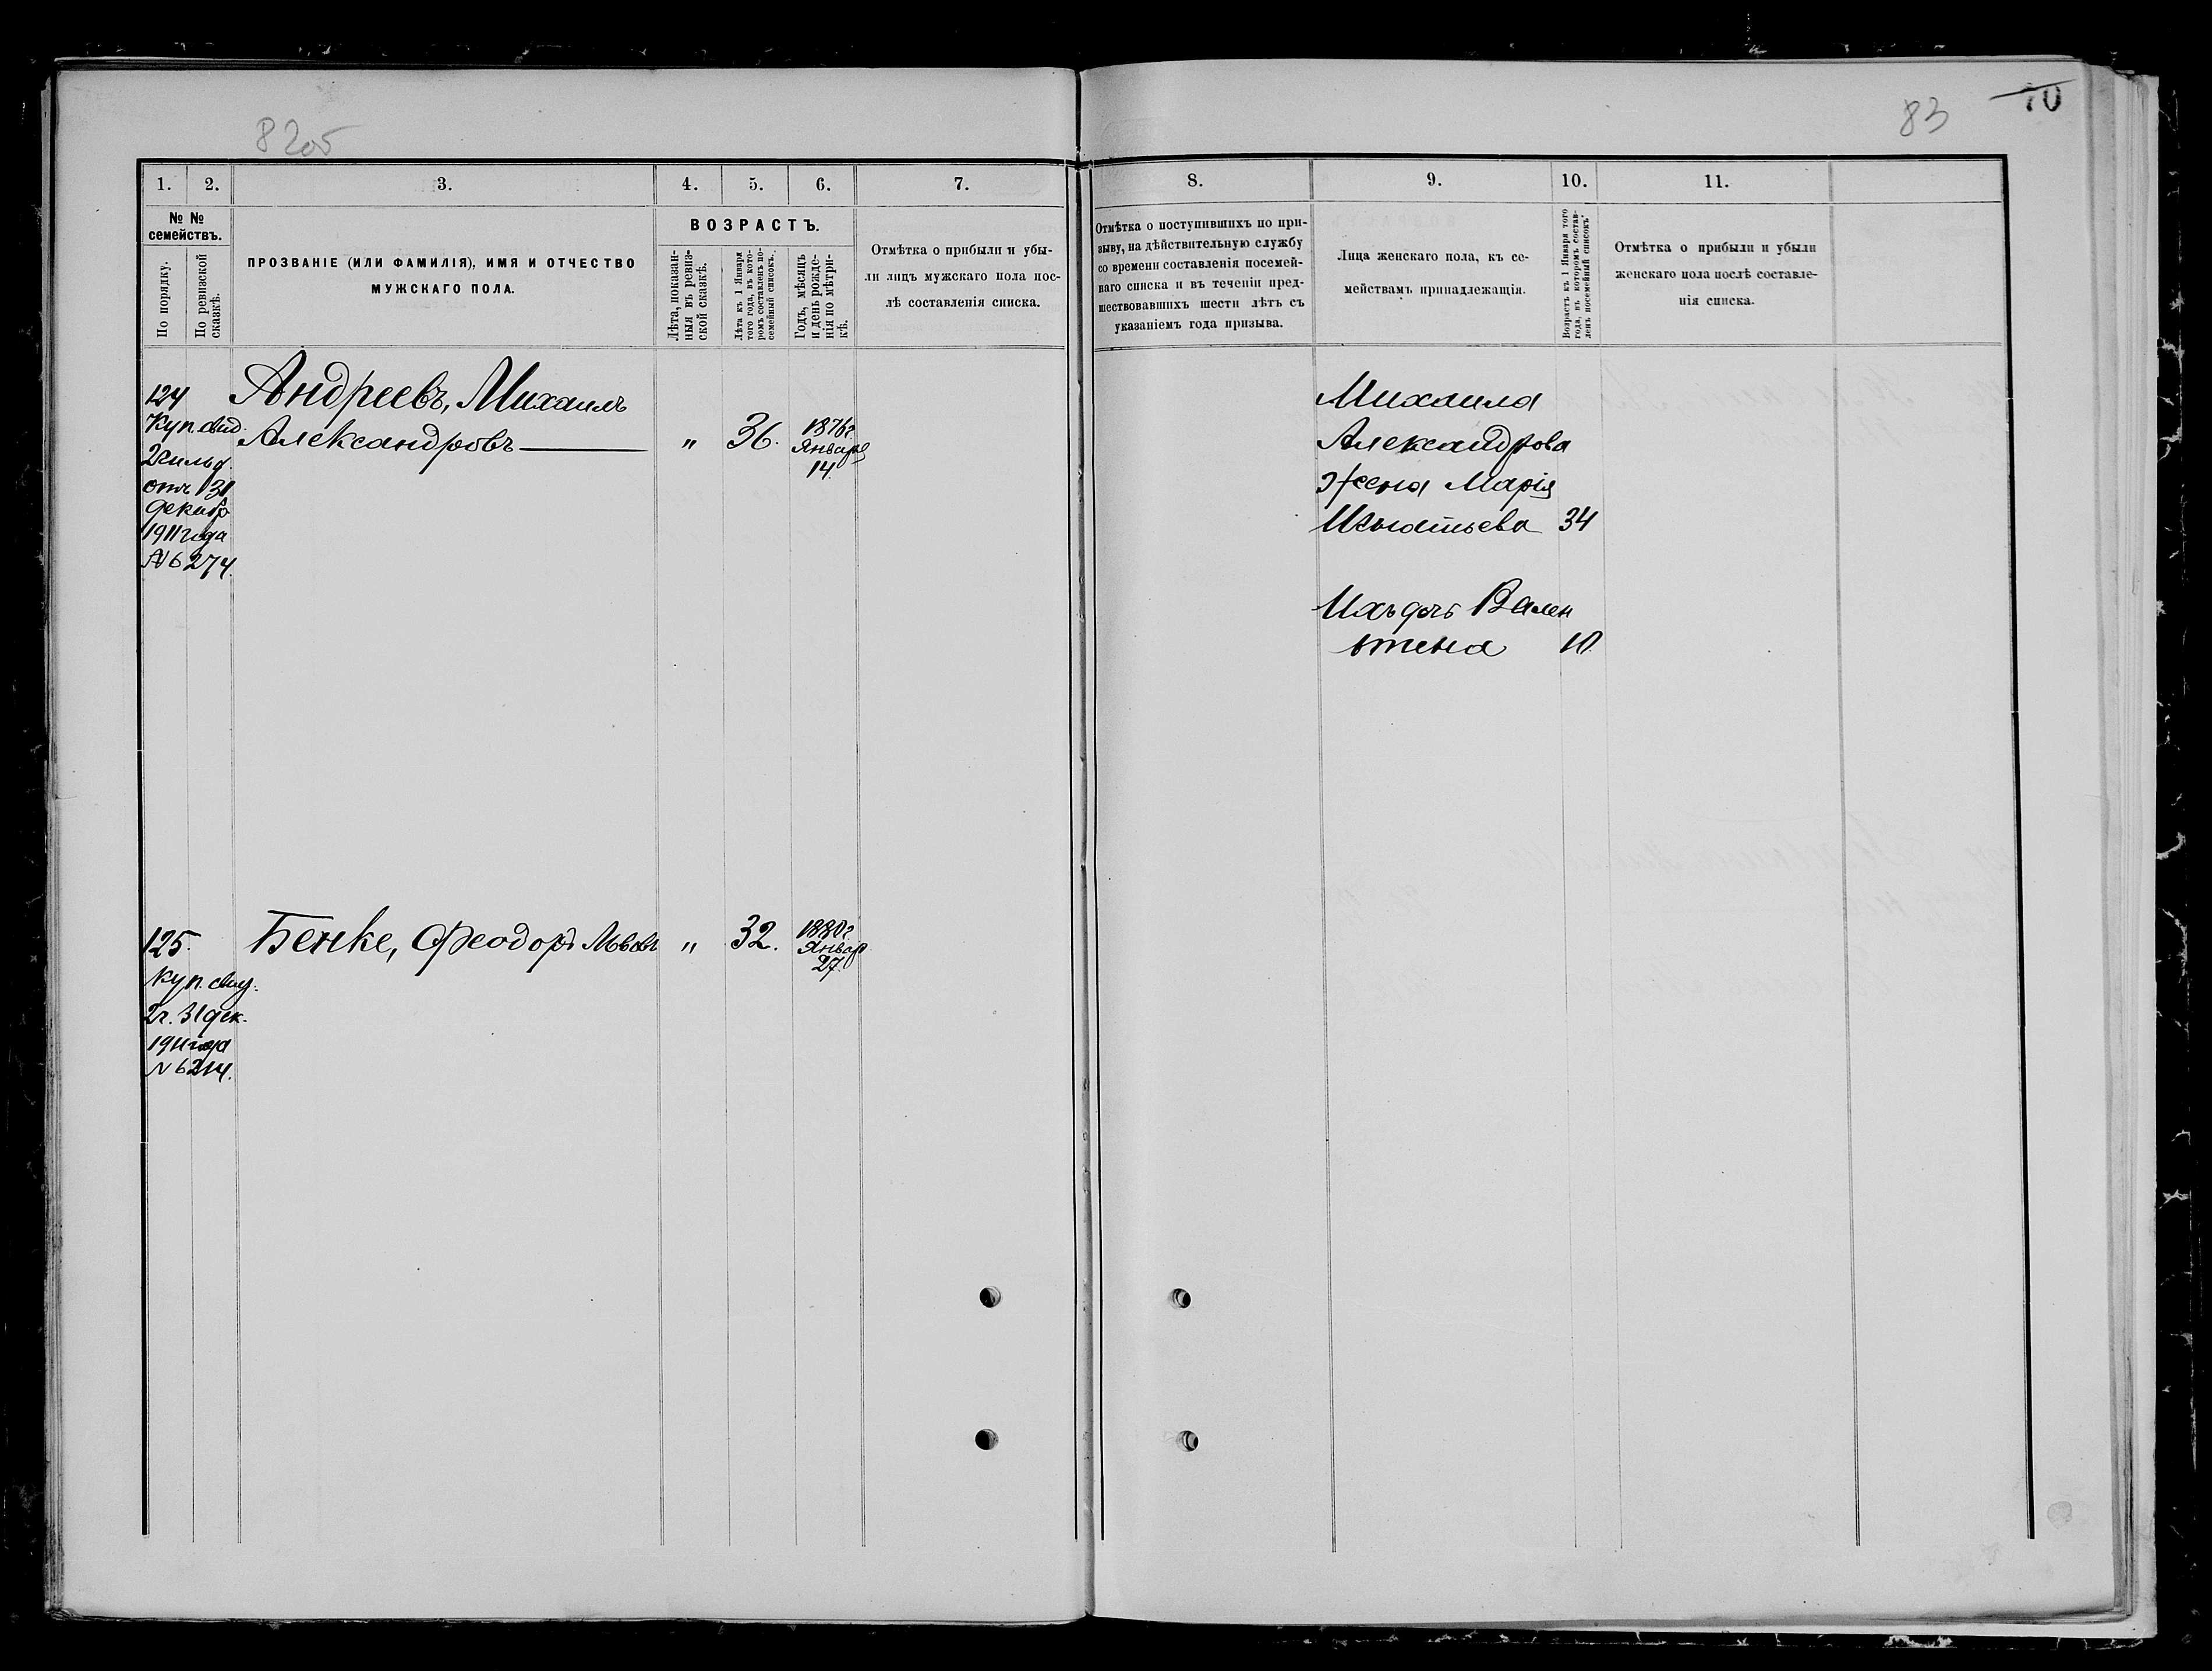 82об
83
70
1.
2.
3.
4.
5.
6.
7.
№ №
семействъ.
По порядку.
По ревизской
сказкѣ.
ПРОЗВАНІЕ (ИЛИ ФАМИЛІЯ), ИМЯ И ОТЧЕСТВО
МУЖСКАГО ПОЛА.
ВОЗРАСТЪ.
Лѣта, показан-
ныя въ ревиз-
ской сказкѣ.
Лѣта къ 1 Января
того года, въ кото-
ромъ составленъ по-
семейный списокъ.
Годъ, мѣсяцъ
и день рожде-
нія по мѣтри-
кѣ.
Отмѣтка о прибыли и убы-
ли лицъ мужскаго пола пос-
лѣ составленія списка.
124
Куп. свид.
2 гильд.
отъ 31
декабр
1911 года
№ 6274.
Андреевъ, Михаилъ
Александровъ
" 36. 1876 г.
Января
14.
125.
Куп. свид.
2 г. 31 дек.
1911 года
№ 6214.
Бенке, Феодоръ Львовъ " 32. 1880 г.
Январ
27.
8.
9.
10.
11.
Отмѣтка о поступившихъ по при-
зыву, на дѣйствительную службу
со времени составленія посемей-
наго списка и въ теченіи пред-
шествовавшихъ шести лѣтъ съ
указаніемъ года призыва.
Лица женскаго пола, къ се-
мействамъ принадлежащія.
Возрастъ къ 1 Января того
года, въ которомъ состав-
ленъ посемейный списокъ.
Отмѣтка о прибыли и убыли
женскаго пола послѣ составле-
нія списка.
Михаила
Александрова
жена Марія
Игнатьева 34
Ихъ дочь Вален
тина 10.